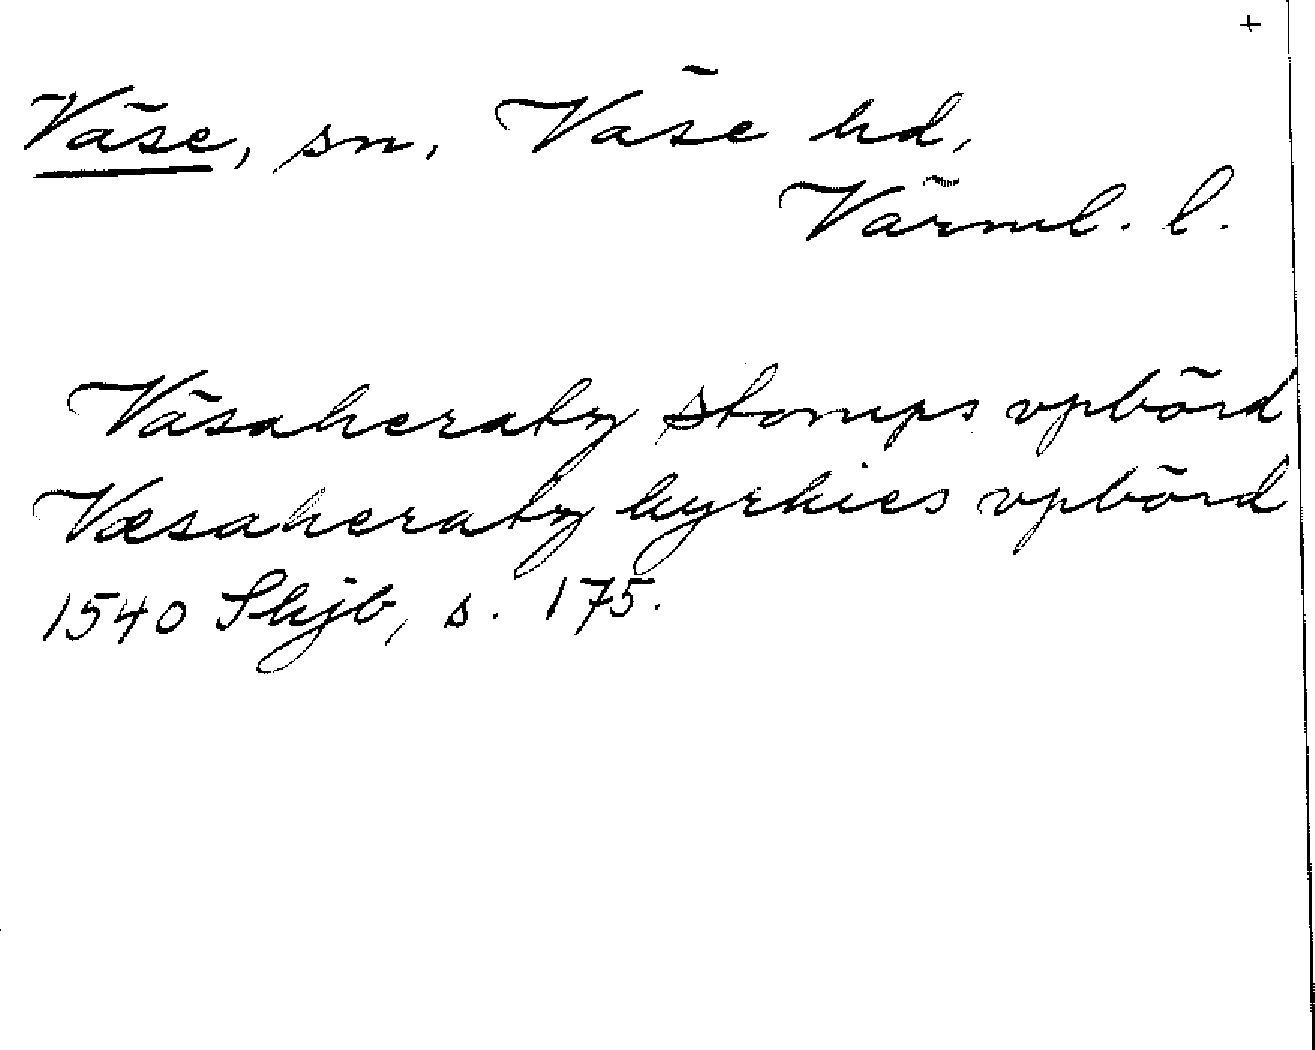 +
Väse, sn, Väse hd,
Värml. l.
Väsaheratz stomps vpbörd
Væsaheratz kyrkies vpbörd
1540 Skjb, s. 175.